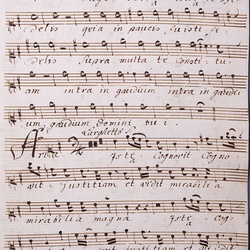 delis quia in pauca fuisti fi
delis supra multa te consti tu
am intra in gaudium intra in gaudi
um gaudium Domini tui
Larghetto
Aria Iste cognovit cogno
vit justitiam et vidit mirabilia
mirabilia magna Iste cog
justitiam et vidit